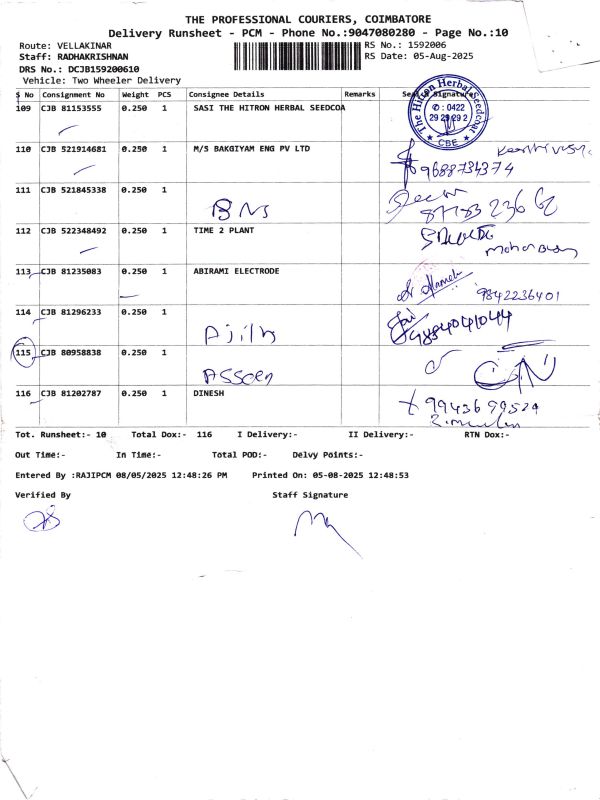 THE PROFESSIONAL COURIERS, COIMBATORE
Delivery Runsheet - PCM - Phone No.:9047080280 - Page No.:10
Route: VELLAKINAR
RS No.: 1592006
Staff: RADHAKRISHNAN
RS Date: 05-Aug-2025
DRS No.: DCJB159200610
Vehicle: Two Wheeler Delivery
S No Consignment No Weight PCS Consignee Details Remarks Seal & Signature
109 CJB 81153555 0.250 1 SASI THE HITRON HERBAL SEEDCOA
The Hitron Herbal Seedcoat
✆ : 0422
★ CBE ★
110 CJB 521914681 0.250 1 M/S BAKGIYAM ENG PV LTD
9688734374
111 CJB 521845338 0.250 1
BNS
112 CJB 522348492 0.250 1 TIME 2 PLANT
113 CJB 81235083 0.250 1 ABIRAMI ELECTRODE
9842236401
114 CJB 81296233 0.250 1
Ajith
115 CJB 80958838 0.250 1
116 CJB 81202787 0.250 1 DINESH
Tot. Runsheet:- 10 Total Dox:- 116 I Delivery:- II Delivery:- RTN Dox:-
Out Time:- In Time:- Total POD:- Delvy Points:-
Entered By :RAJIPCM 08/05/2025 12:48:26 PM Printed On: 05-08-2025 12:48:53
Verified By Staff Signature